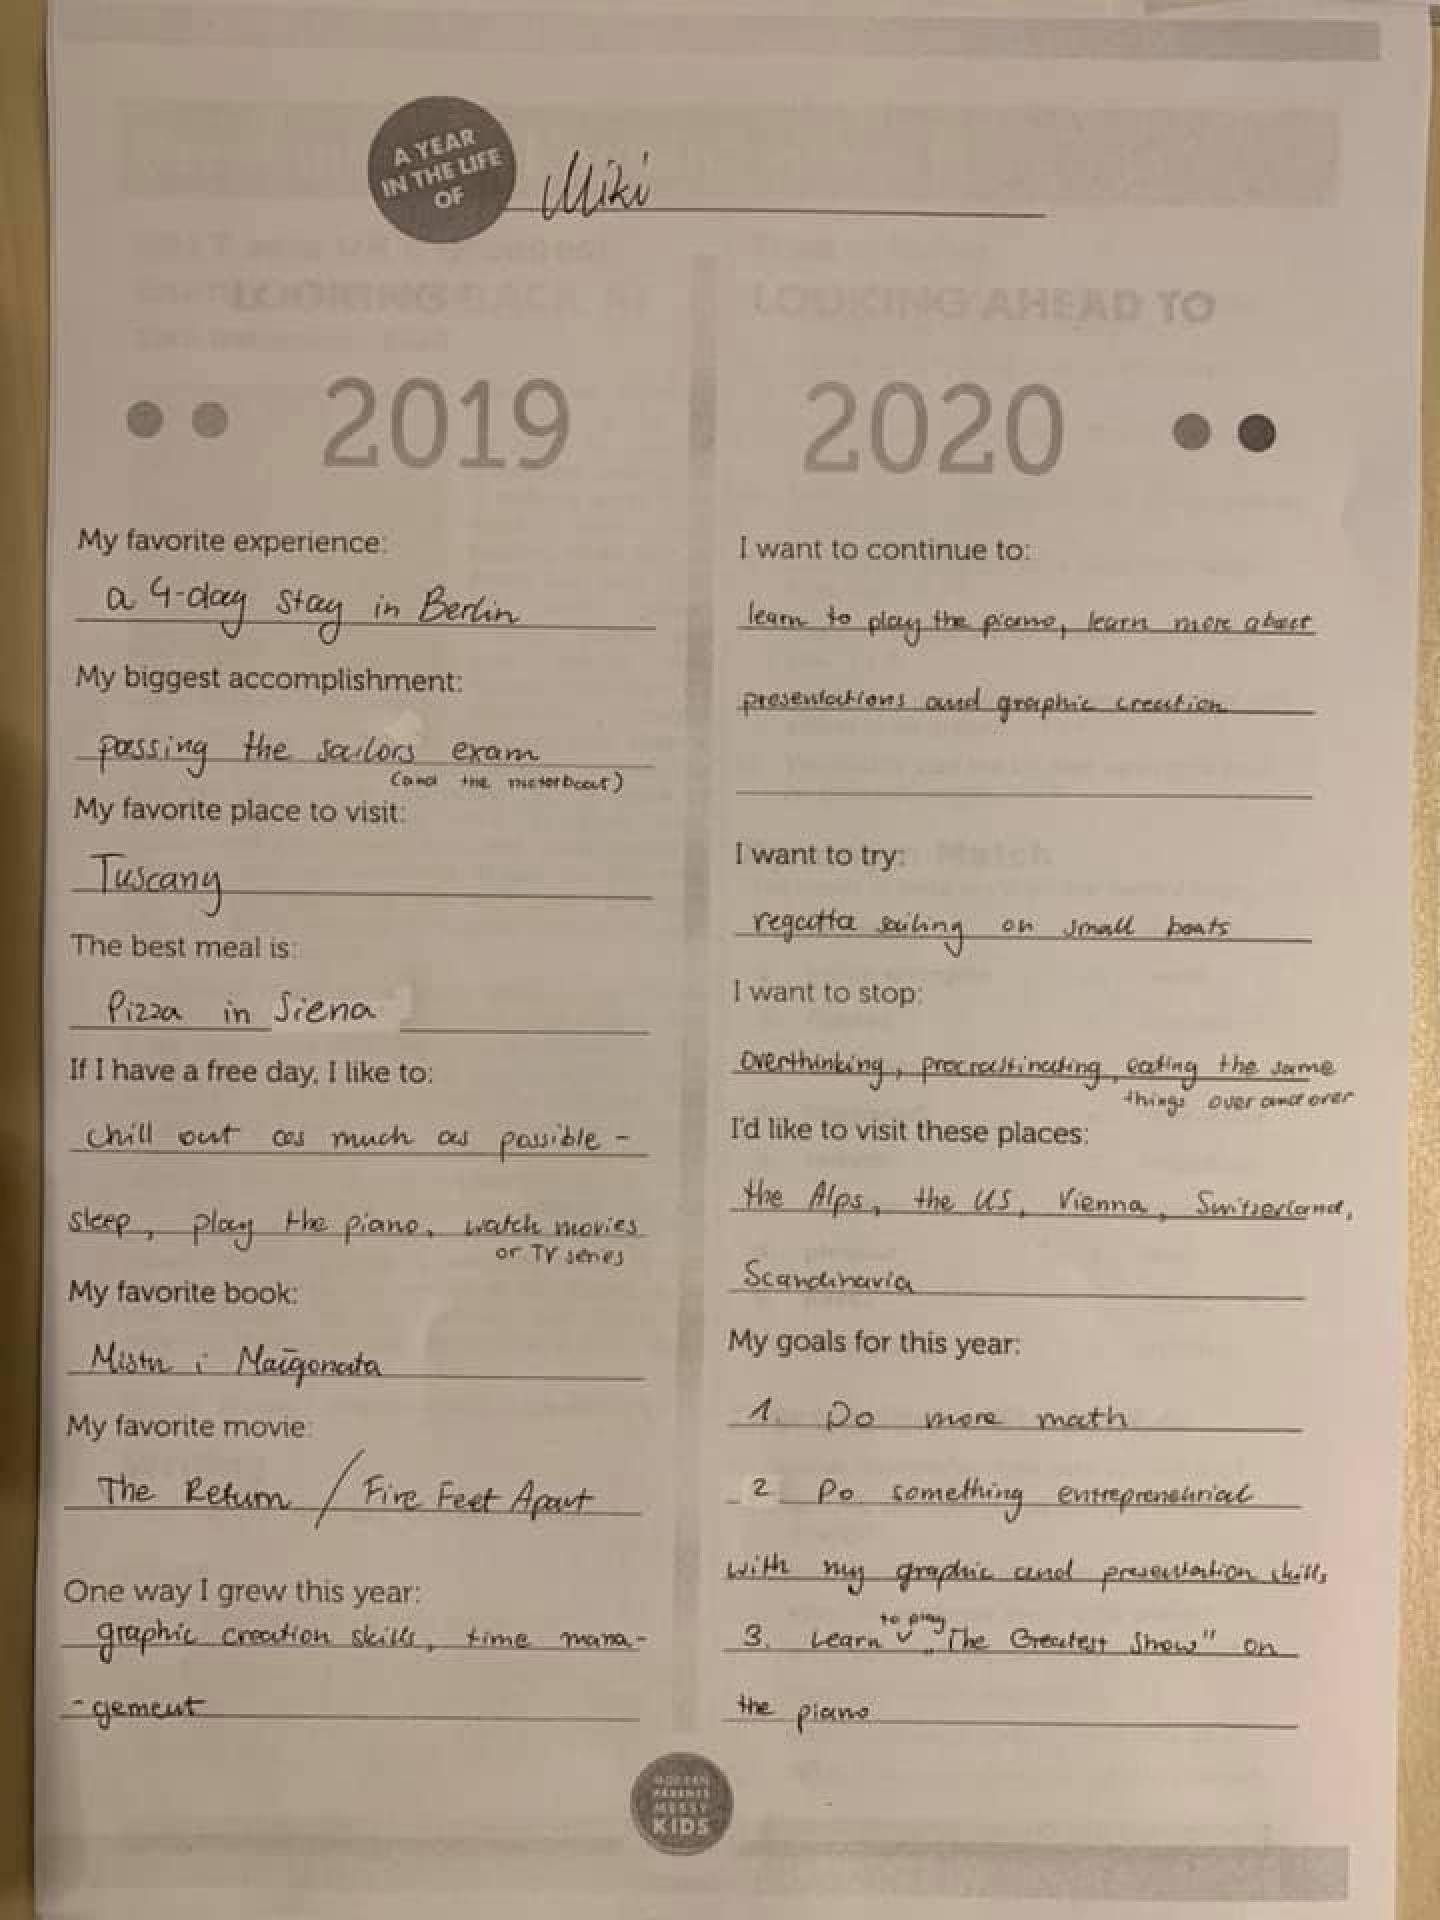 A YEAR
IN THE LIFE
OF
Miki
LOOKING BACK AT
2019
My favorite experience:
a 4-day stay in Berlin
My biggest accomplishment:
passing the sailors exam
(and the motorboat)
My favorite place to visit:
Tuscany
The best meal is:
Pizza in Siena
If I have a free day, I like to:
chill out as much as possible -
sleep, play the piano, watch movies
or TV series
My favorite book:
Mistrz i Małgorzata
My favorite movie:
The Return / Five Feet Apart
One way I grew this year:
graphic creation skills, time mana-
-gement
LOOKING AHEAD TO
2020
I want to continue to:
learn to play the piano, learn more about
presentations and graphic creation
I want to try:
regatta sailing on small boats
I want to stop:
overthinking, procrastinating, eating the same
things over and over
I'd like to visit these places:
the Alps, the US, Vienna, Switzerland,
Scandinavia
My goals for this year:
1. Do more math
2 Do something entreprenehrial
with my graphic and presentation skills
3. Learn to play „The Greatest Show" on
the piano
MODERN
PARENTS
MESSY
KIDS